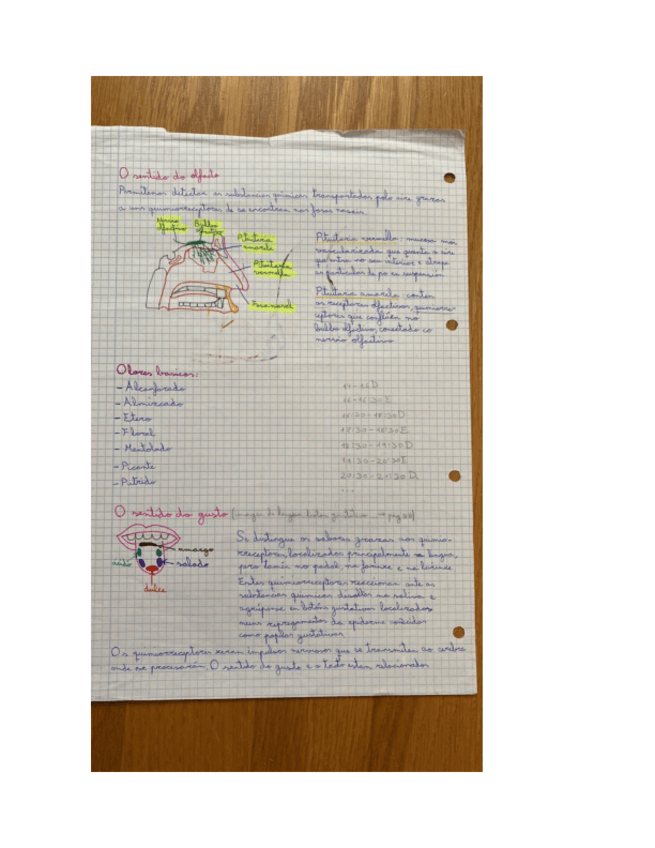 O sentido do olfacto
Permítenos detectar as substancias químicas transportadas polo aire grazas
a uns quimiorreceptores que se encontran nas fosas nasais.
nervio
olfactivo
Bulbo
Pituitaria
amarela
Pituitaria
vermella
Fosa nasal
Pituitaria vermella: mucosa moi
vascularizada que quenta o aire
que entra no seu interior e atrapa
as partículas de po en suspensión
Pituitaria amarela: contén
os receptores olfactivos, quimiorre-
ceptores que conflúen no
bulbo olfactivo, conectado co
nervio olfactivo
Olores basicos:
- Alcanforado
- Almizcado
- Etereo
- Floral
- Mentolado
- Picante
- Putrido
18:30-19:30 D
19:30-20:30 E
20:30-21:30 D
...
O sentido do gusto
amargo
acido
salado
dulce
Se distingue os sabores grazas aos quimio-
rreceptores, localizados principalmente na lingua,
pero tamén no padal, na farinxe e na larinxe.
Estes quimiorreceptores reaccionan ante as
substancias químicas disoltas na saliva e
agrúpanse en botóns gustativos localizados
nuns repregamentos da epiderme coñecidos
como papilas gustativas
Os quimiorreceptores xeran impulsos nerviosos que se transmiten ao cerebro
onde se procesarán. O sentido do gusto e o tacto estan relacionados